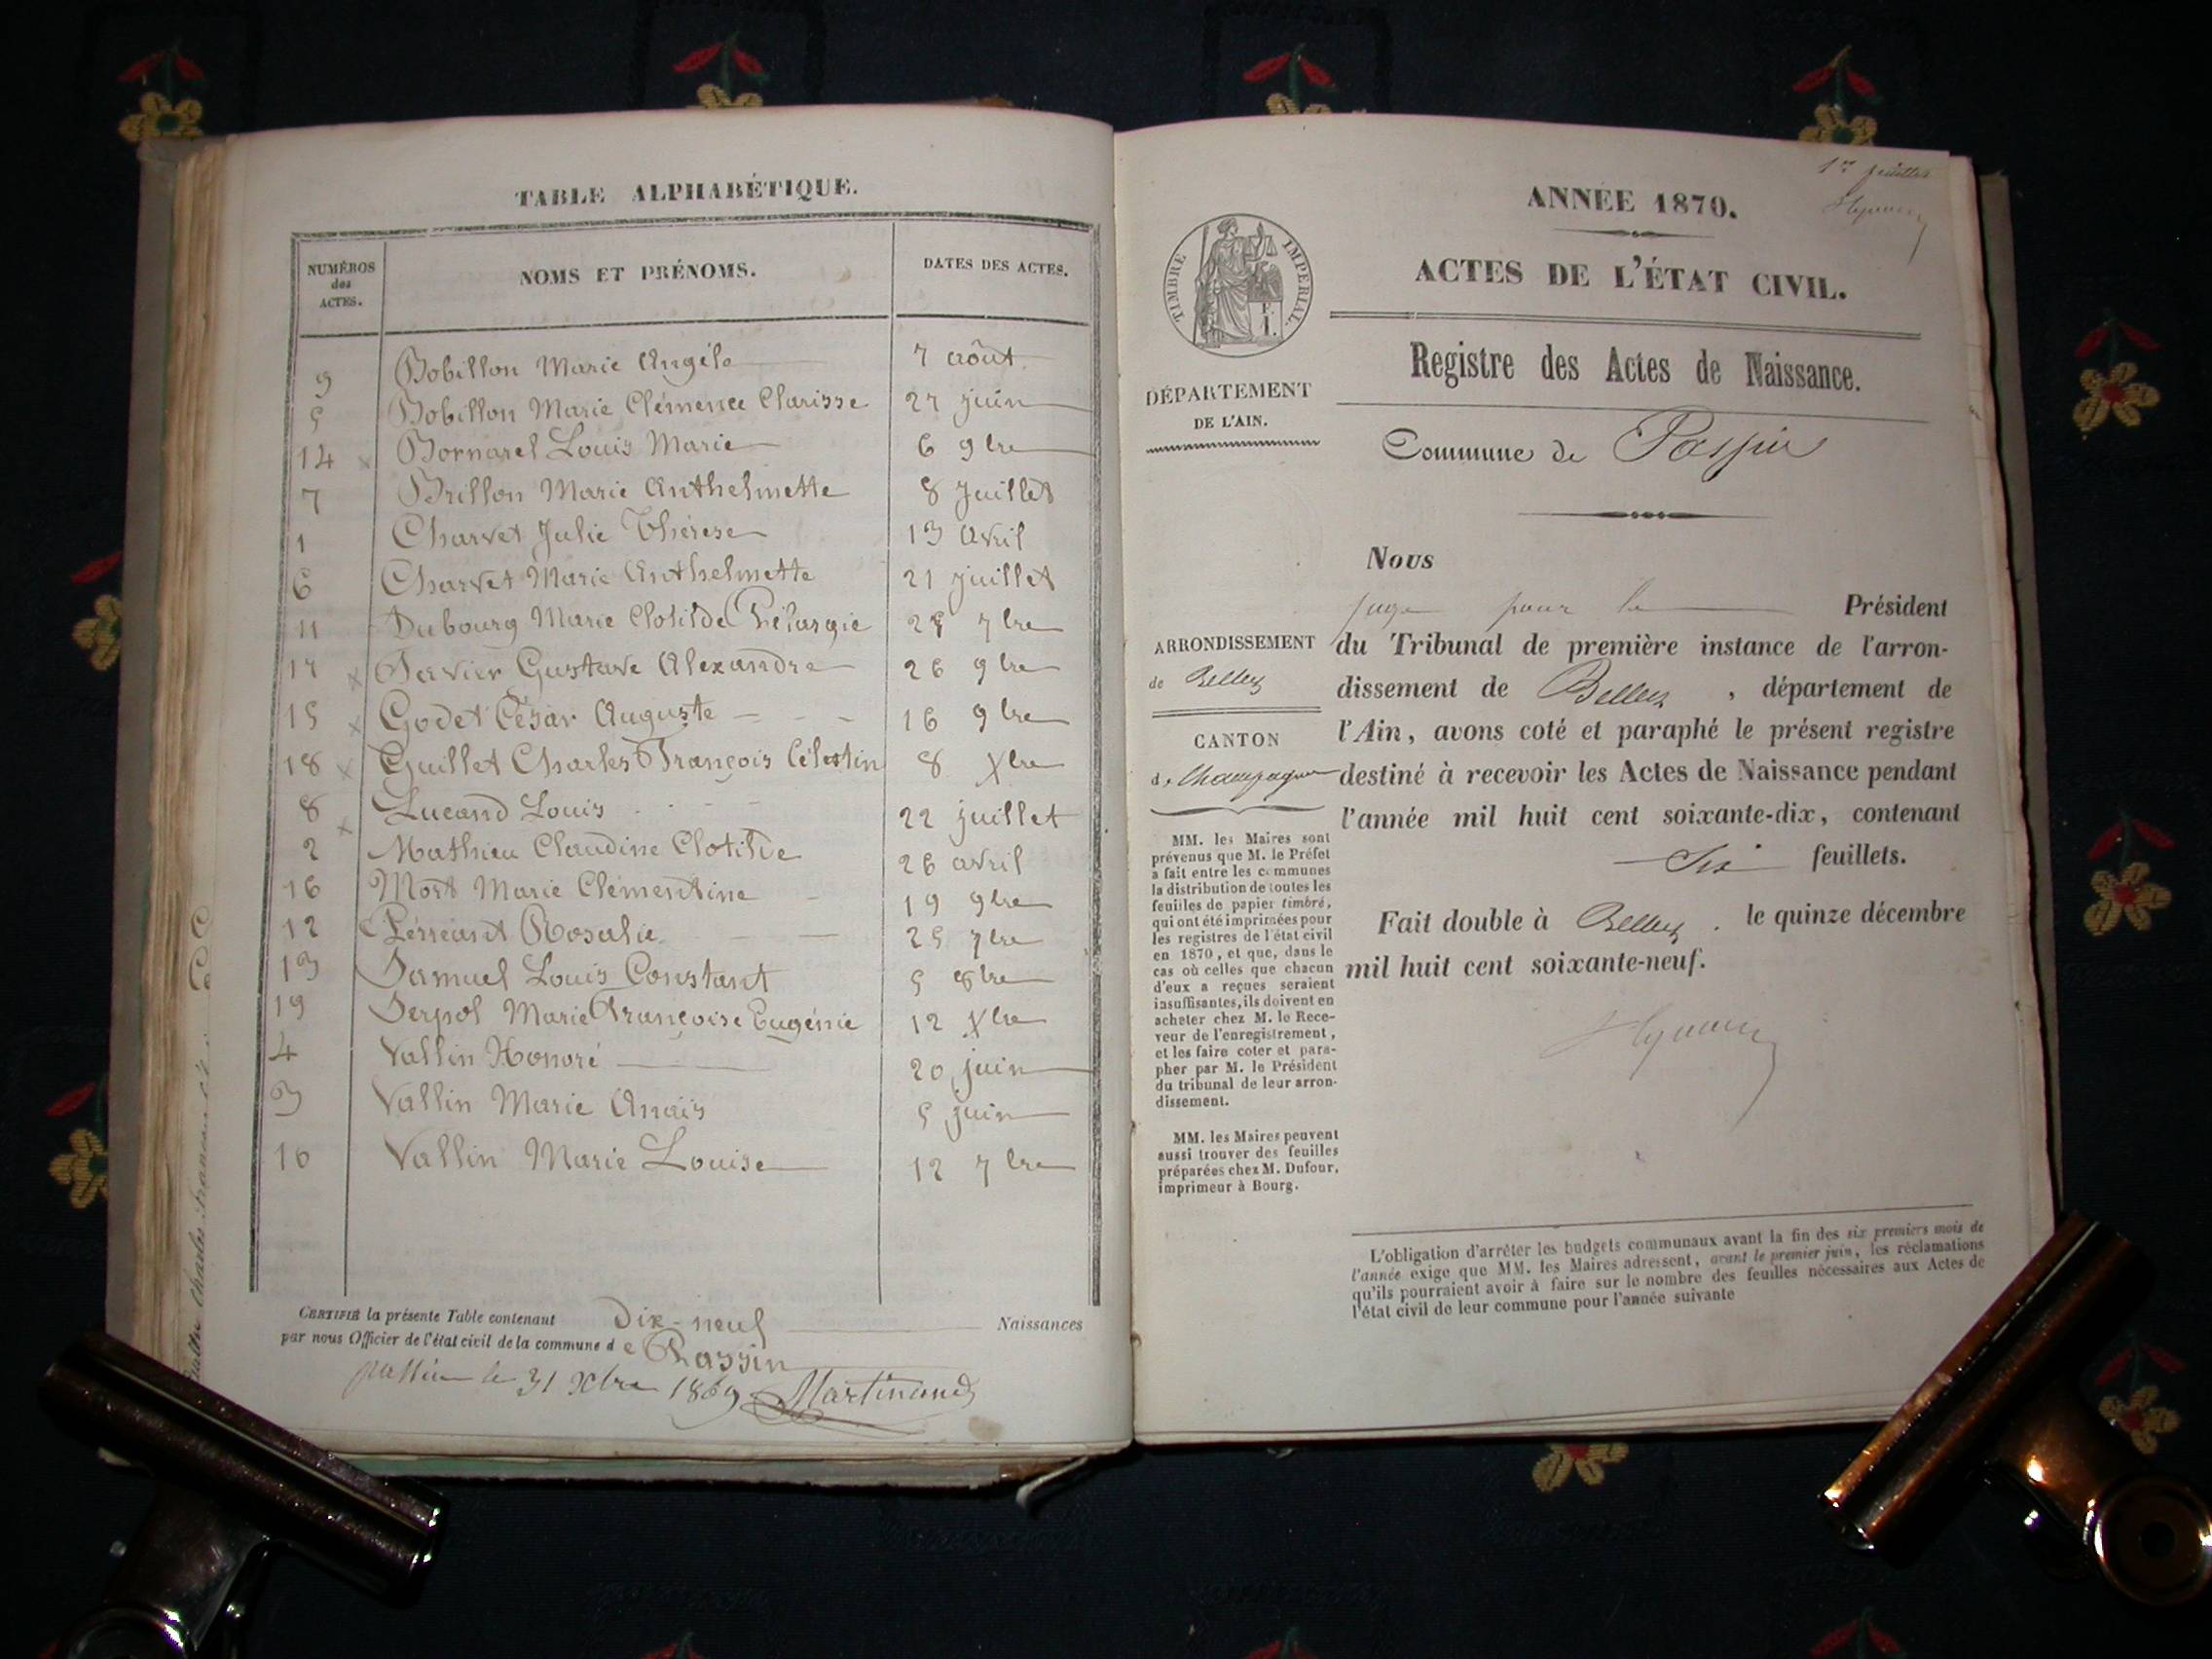 TABLE ALPHABÉTIQUE.
NUMÉROS des ACTES. NOMS ET PRÉNOMS. DATES DES ACTES.
9 Bobillon Marie Angèle 7 août
5 Bobillon Marie Clémence Clarisse 27 juin
14 Bornarel Louis Marie 6 9bre
7 Brillon Marie Anthelmette 8 juillet
1 Charvet Julie Thérèse 13 avril
6 Charvet Marie Anthelmette 21 juillet
11 Dubourg Marie Clotilde Pélargie 7bre
17 Gustave Alexandre 26 9bre
15 Godet César Auguste 16 9bre
18 Guillet Charles François Célestin 8 Xbre
8 Lucand Louis 22 juillet
2 Mathieu Claudine Clotilde 26 avril
16 Mort Marie Clémentine 19 9bre
12 Rosalie 25 7bre
13 Samuel Louis Constant 5 8bre
19 Serpol Marie Françoise Eugénie 12 Xbre
4 Vallin Honoré 20 juin
3 Vallin Marie Anaïs 5 juin
10 Vallin Marie Louise 12 7bre
CERTIFIÉ la présente Table contenant Dix-neuf Naissances
par nous Officier de l'état civil de la commune de Passin
passin le 31 Xbre 1869 Martinand
1er feuillet
ANNÉE 1870.
ACTES DE L'ÉTAT CIVIL.
TIMBRE IMPÉRIAL.
Registre des Actes de Naissance.
DÉPARTEMENT
DE L'AIN.
Commune de Passin
Nous
juge pour le Président
du Tribunal de première instance de l'arron-
dissement de Belley, département de
l'Ain, avons coté et paraphé le présent registre
destiné à recevoir les Actes de Naissance pendant
l'année mil huit cent soixante-dix, contenant
Six feuillets.
Fait double à Belley. le quinze décembre
mil huit cent soixante-neuf.
ARRONDISSEMENT
de Belley
CANTON
de Champagne
MM. les Maires sont
prévenus que M. le Préfet
a fait entre les communes
la distribution de toutes les
feuilles de papier timbré,
qui ont été imprimées pour
les registres de l'état civil
en 1870, et que, dans le
cas où celles que chacun
d'eux a reçues seraient
insuffisantes, ils doivent en
acheter chez M. le Rece-
veur de l'enregistrement,
et les faire coter et para-
pher par M. le Président
du tribunal de leur arron-
dissement.
MM. les Maires peuvent
aussi trouver des feuilles
préparées chez M. Dufour,
imprimeur à Bourg.
L'obligation d'arrêter les budgets communaux avant la fin des six premiers mois de
l'année exige que MM. les Maires adressent, avant le premier juin, les réclamations
qu'ils pourraient avoir à faire sur le nombre des feuilles nécessaires aux Actes de
l'état civil de leur commune pour l'année suivante